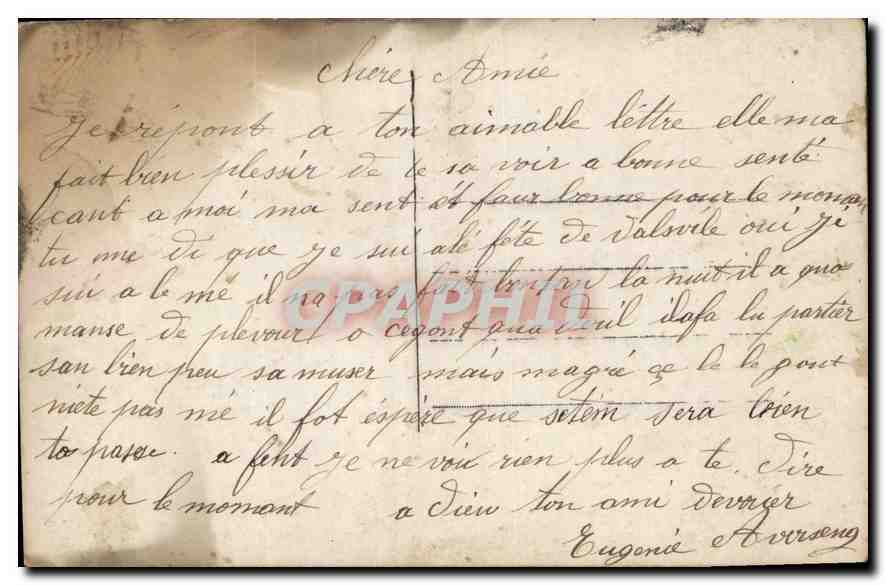 chière Amie
Je répont a ton aimable léttre elle ma
fait bien plessir de te sa voir a bonne senté
cant a moi ma sent ét faur bonne pour le moman
tu me di que je sui alé féte de dalsvile oui je
sui a le mé il na pas fait bontan la nuit il a qua
manse de plevour o cegont qua deuil ilafa lu partier
san bien peu sa muser mais magré çe le le pont
niete pas mé il fot éspére que setém sera bien
to passe. a fint je ne voi rien plus a te. dire
pour le momant a dieu ton ami devouer
Eugenie Averseng
CPAPHIL